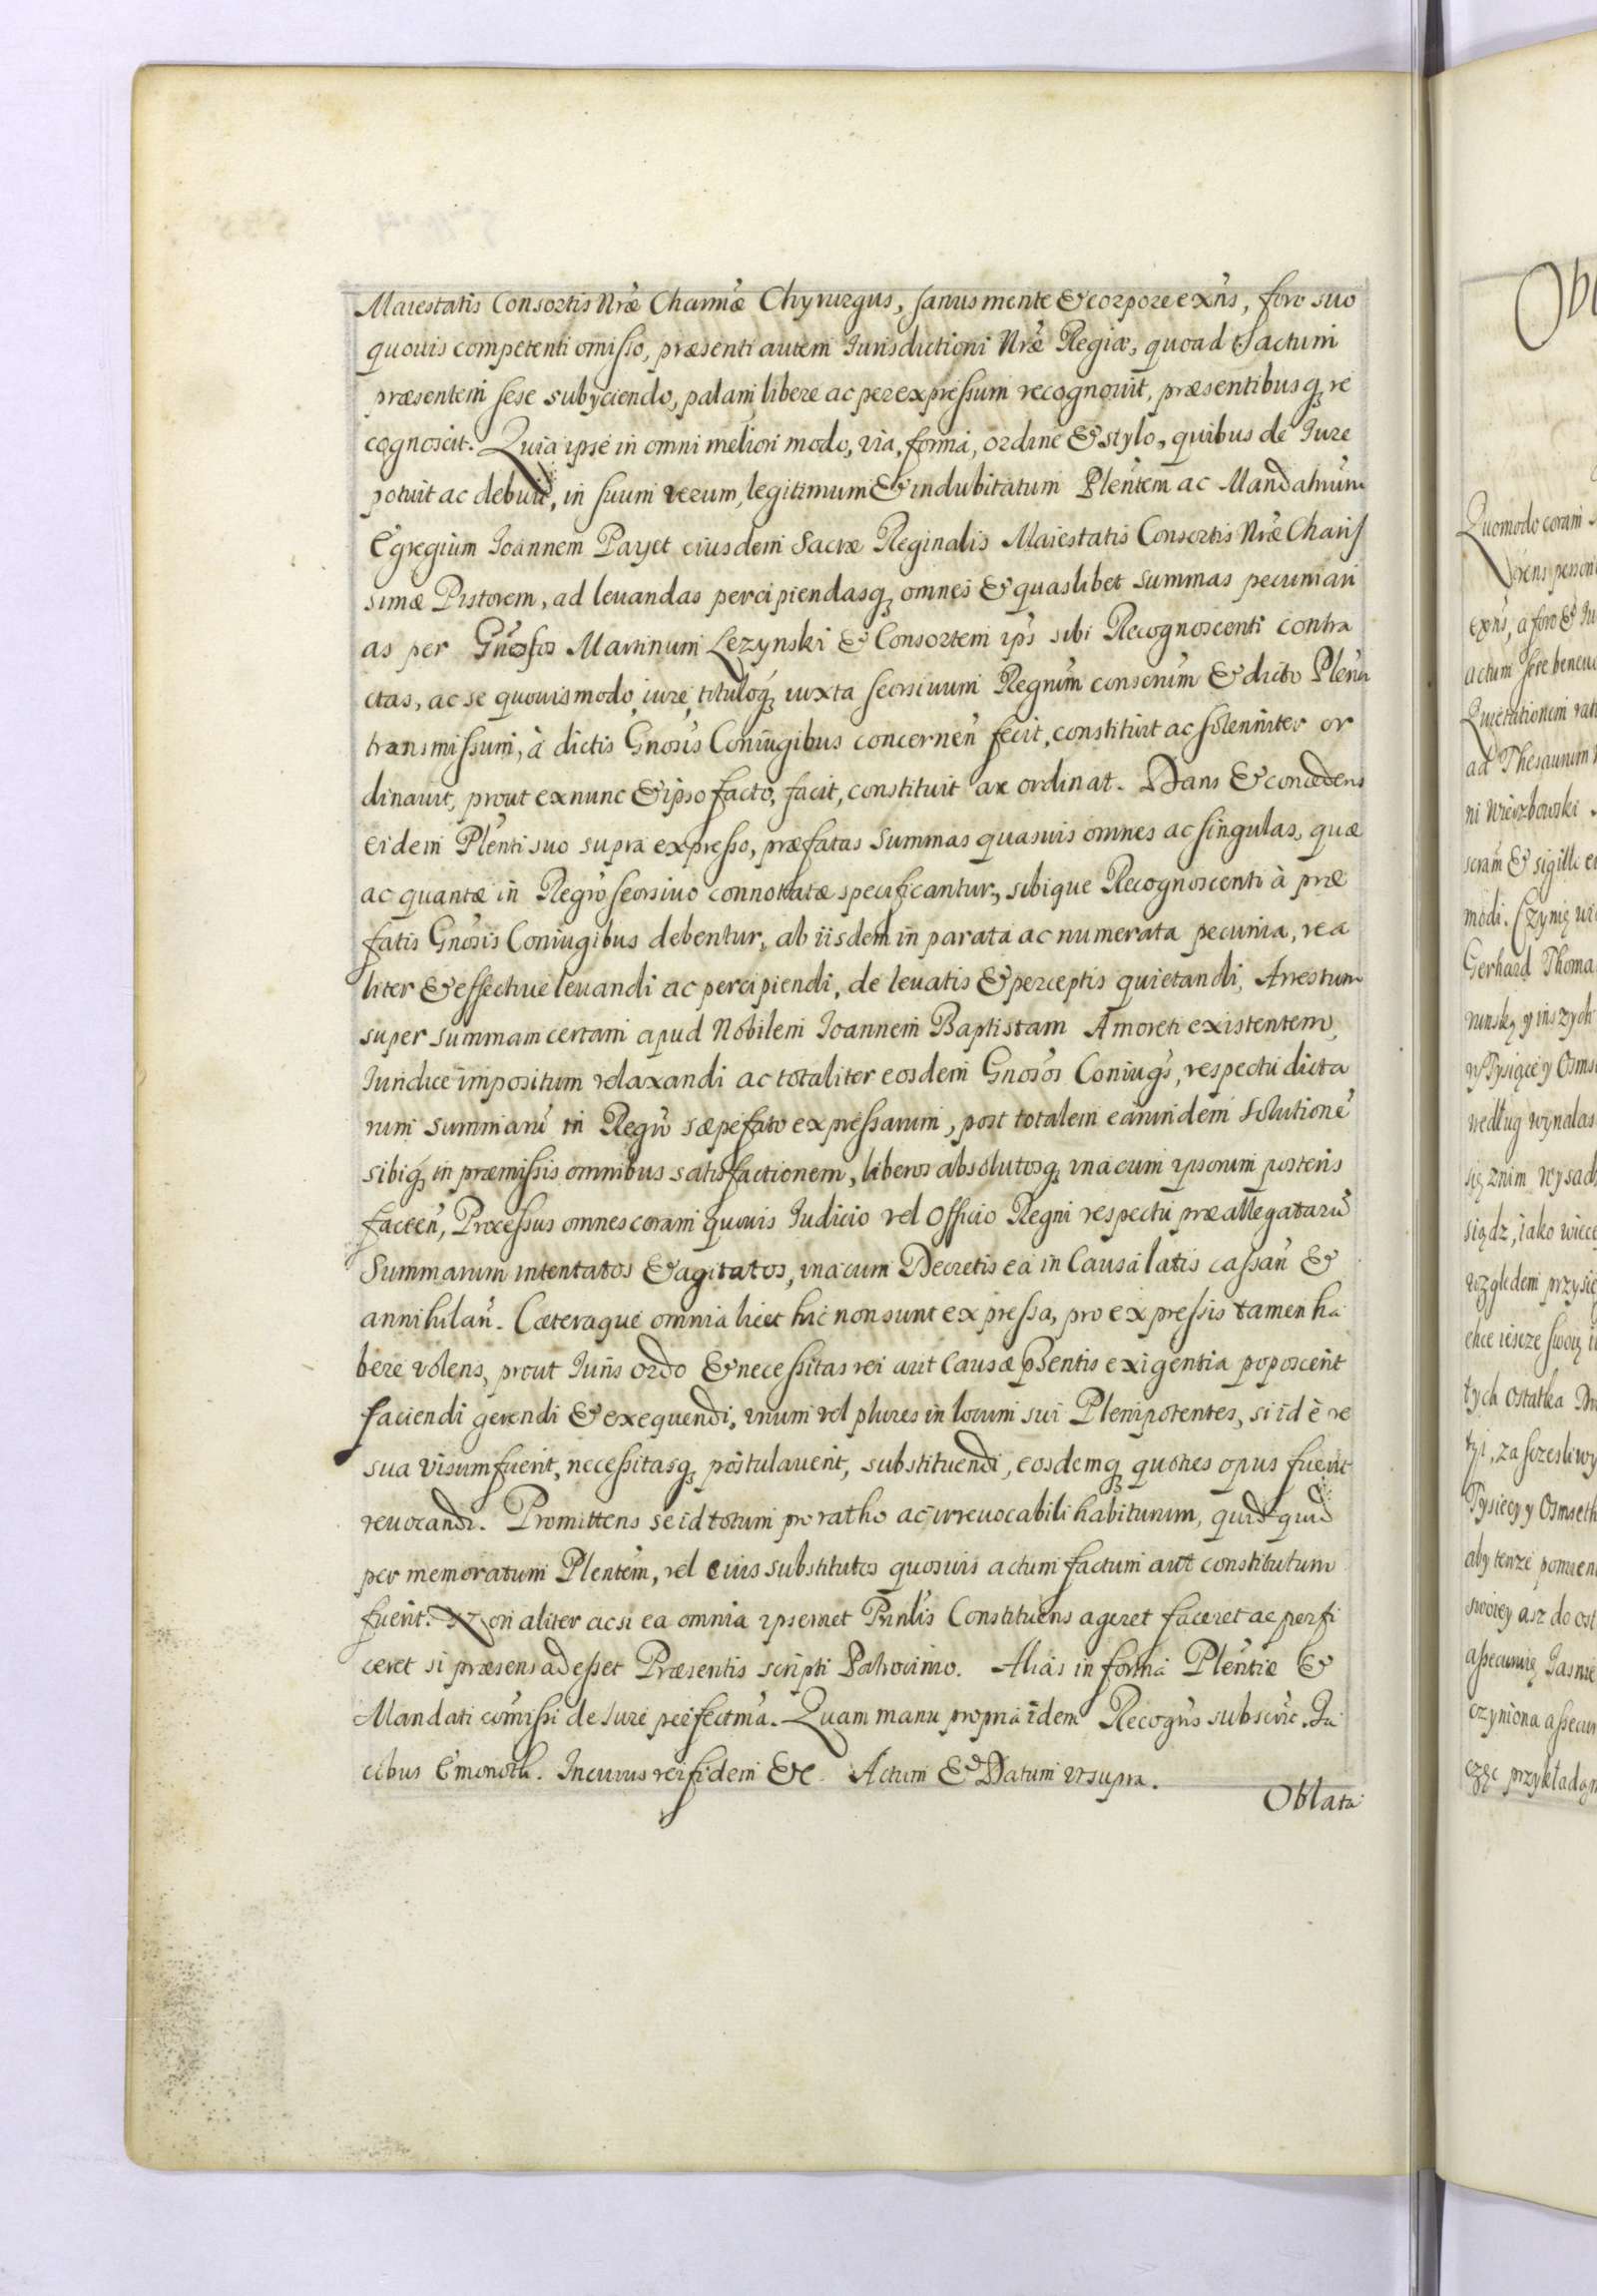 Maiestatis Consortis Nræ Charmæ Chyrurgus, sanus mente & corpore exñs, foro suo
quouis competenti omisso, præsenti autem Iurisdictioni Nræ Regiæ, quoad actum
præsentem sese subyciendo, palam libere ac per expressum recognouit, præsentibusq; re
cognoscit. Quia ipse in omni meliori modo, via, forma, ordine & stylo, quibus de Iure
potuit ac debuit, in suum verum, legitimum & indubitatum Plentem ac Mandatrium
Egregium Ioannem Payet eiusdem Sacræ Reginalis Maiestatis Consortis Nræ Charis
simæ Pistorem, ad leuandas percipiendasq; omnes & quaslibet summas pecuniari
as per Gnosos Martinum Lezynski & Consortem ips sibi Recognoscenti contra
ctas, ac se quouismodo iure, tituloq; iuxta seorsiuum Regrum conscrium & dicto Pleno
transmissum, à dictis Gnosis Coniugibus concernen fecit, constituit ac solenniter or
dinauit, prout exnunc & ipso facto, facit, constituit ac ordinat. Dans & concedens
eidem Plenti suo supra expresso, præfatas summas quasuis omnes ac singulas, quæ
ac quantæ in Regro seorsiuo connotatæ specificantur, sibique Recognoscenti à præ
fatis Gnosis Coniugibus debentur, ab iisdem in parata ac numerata pecunia, rea
liter & effectiue leuandi ac percipiendi, de leuatis & perceptis quietandi, Arrestum
super summam certam apud Nobilem Ioannem Baptistam Amoreti existentem,
Iuridice impositum relaxandi ac totaliter eosdem Gnosos Coniugs, respectu dicta
rum summaru in Regro sæpefato expressarum, post totalem earundem solutione
sibiq; in præmissis omnibus satisfactionem, liberos absolutosq; vna cum ipsorum posteris
facien, Processus omnes coram quouis Iudicio vel Officio Regni respectu præallegataru
Summarum intentatos & agitatos, vna cum Decretis ea in Causa latis cassan &
annihilan. Cæteraque omnia licet hic non sunt expressa, pro expressis tamen ha
bere volens, prout Iuris ordo & necessitas rei aut Causæ psentis exigentia poposcerit
faciendi gerendi & exequendi, vnum vel plures in locum sui Plenipotentes, si id è re
sua visum fuerit, necessitasq; postulauerit, substituendi, eosdemq; quoties opus fuerit
reuocandi. Promittens se id totum pro ratho ac irreuocabili habiturum, quidquid
per memoratum Plentem, vel eius substitutos quosuis actum factum aut constitutum
fuerit. Non aliter acsi ea omnia ipsemet Prinlis Constituens ageret faceret ac perfi
ceret si præsens adesset Præsentis scripti Patrocinio. Alias in forma Plentiæ &
Mandati comissi de Iure perfectma. Quam manu propria idem Recogns subscrit. Ia
cibus Emonoth. In cuius rei fidem &c. Actum & Datum vt supra.
Oblata